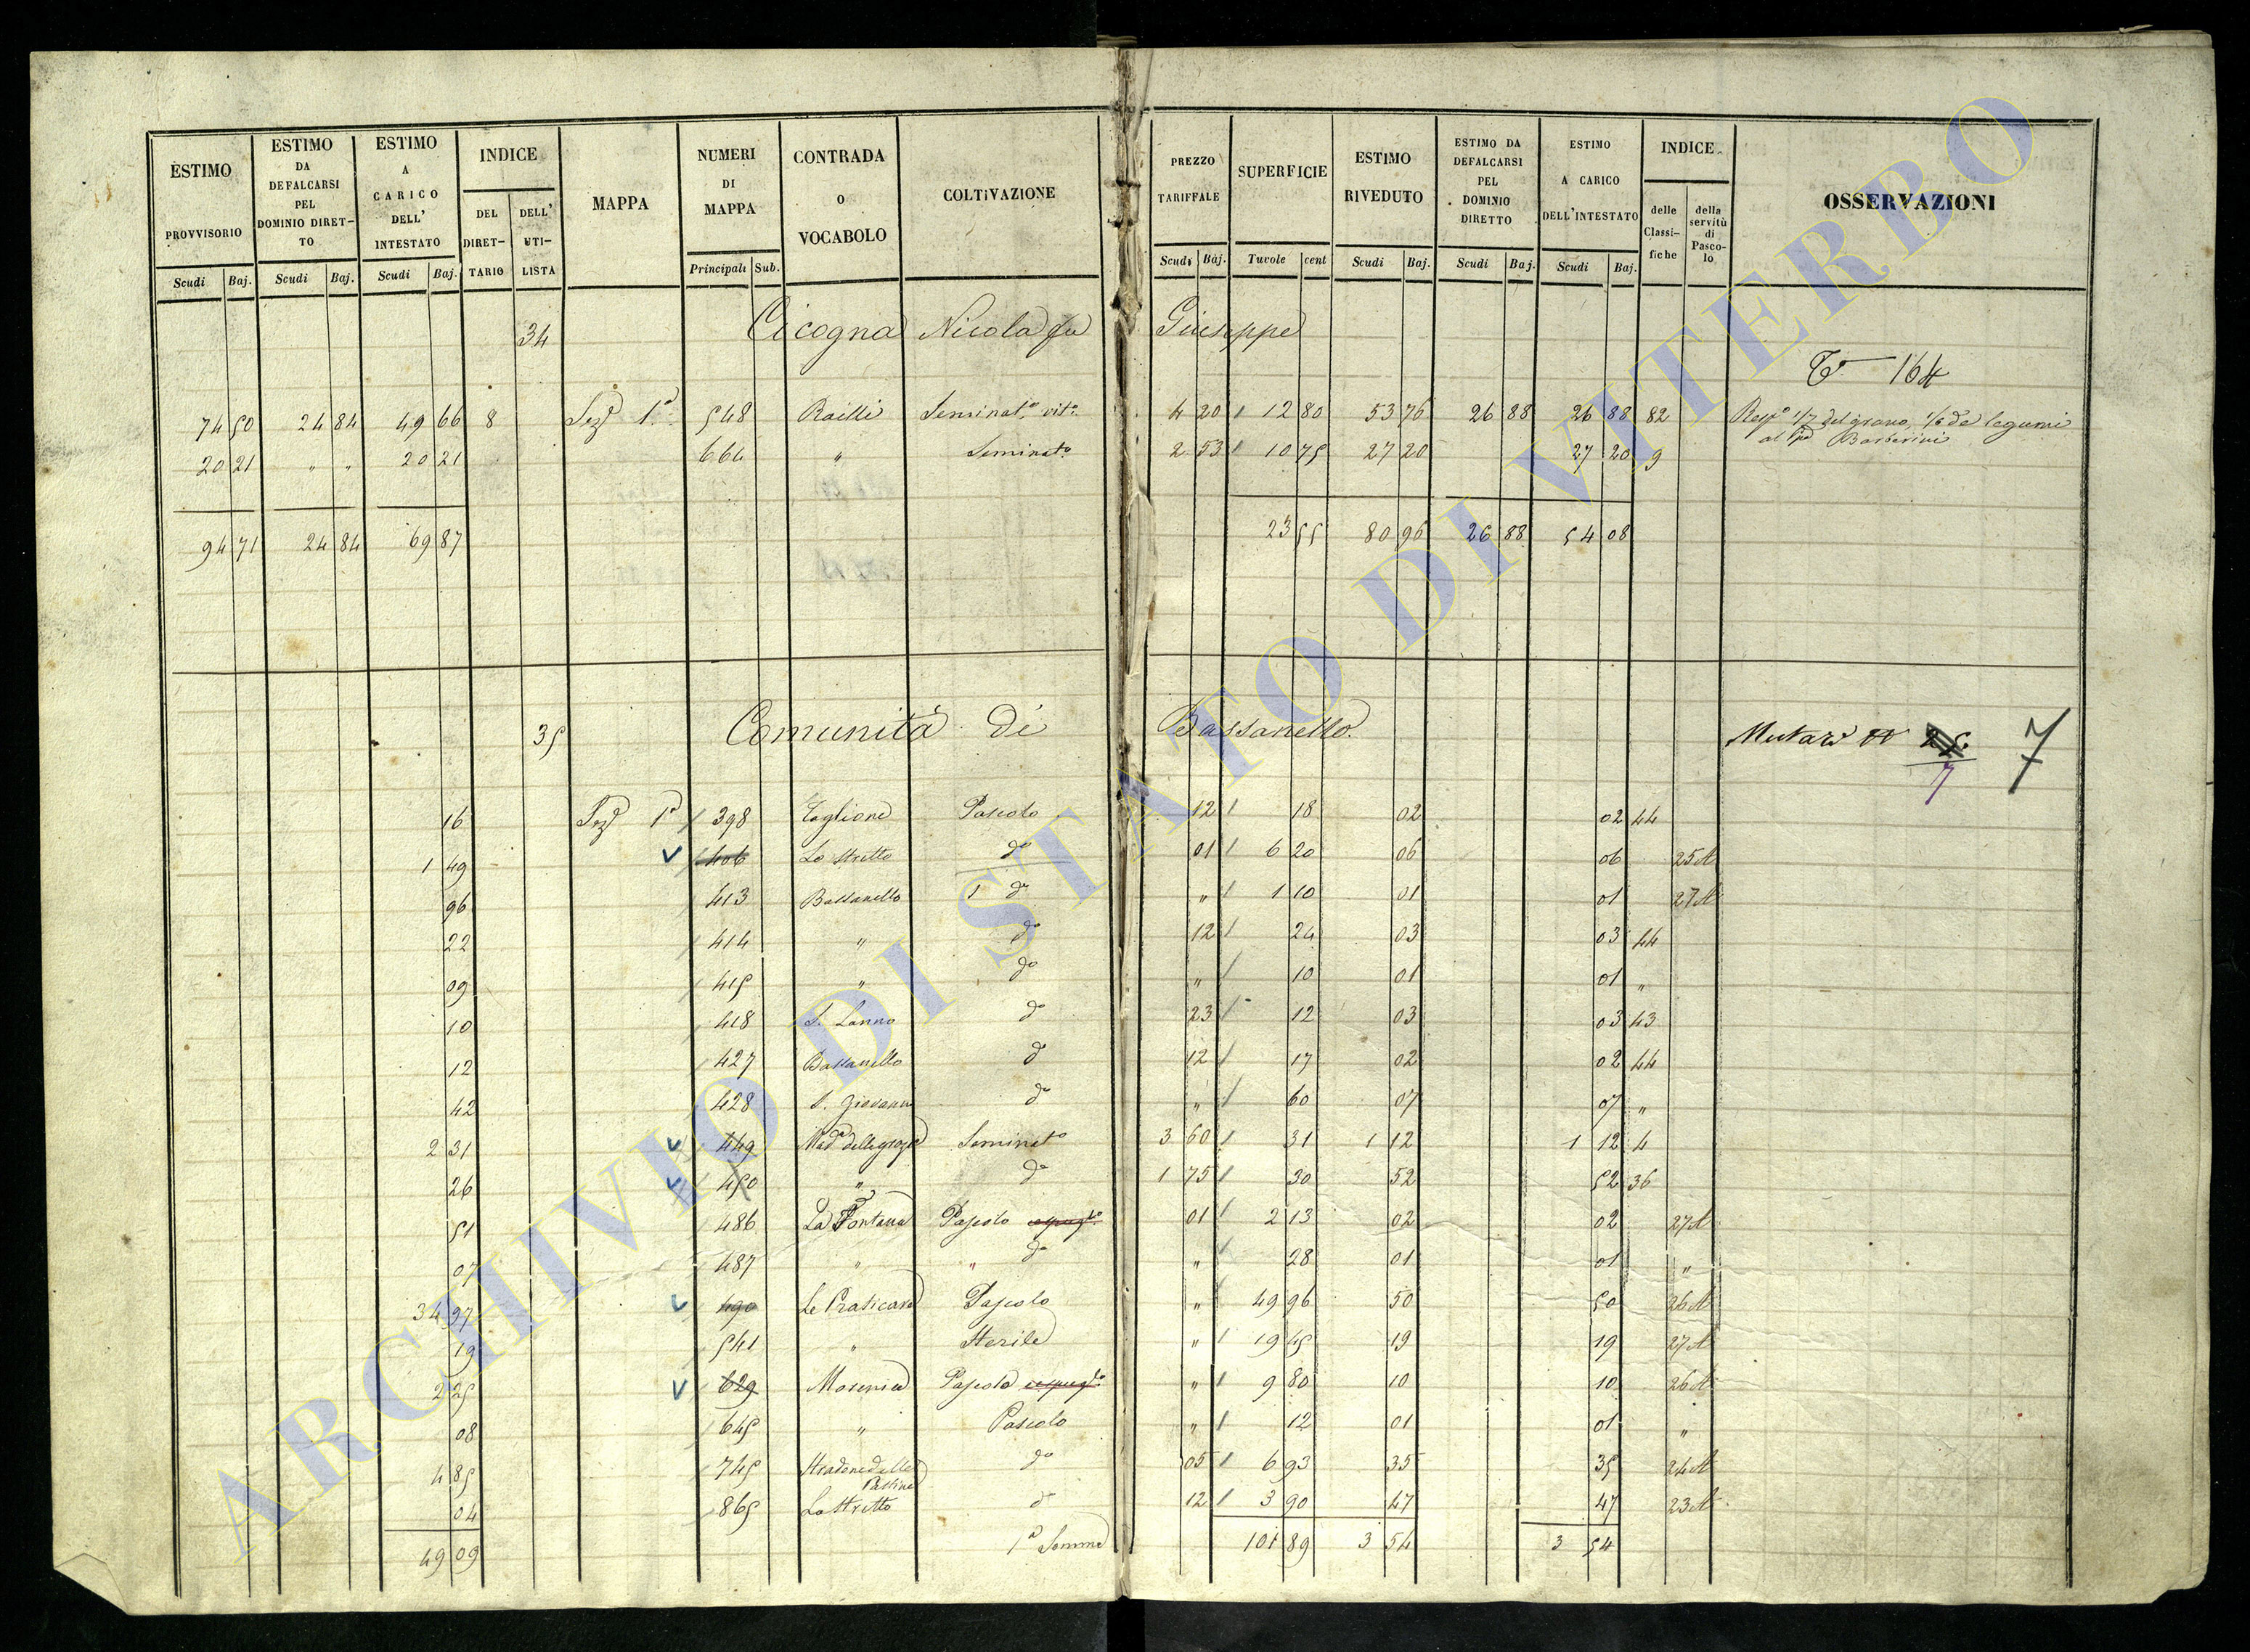 ESTIMO PROVVISORIO Scudi Baj.
ESTIMO DA DEFALCARSI PEL DOMINIO DIRET-TO Scudi Baj.
ESTIMO A CARICO DELL' INTESTATO Scudi Baj.
INDICE DEL DIRET-TARIO DELL' UTI-LISTA
MAPPA
NUMERI DI MAPPA Principali Sub.
CONTRADA O VOCABOLO
COLTIVAZIONE
PREZZO TARIFFALE Scudi Baj.
SUPERFICIE Tavole cent
ESTIMO RIVEDUTO Scudi Baj.
ESTIMO DA DEFALCARSI PEL DOMINIO DIRETTO Scudi Baj.
ESTIMO A CARICO DELL'INTESTATO Scudi Baj.
INDICE delle Classi-fiche della servitù di Pasco-lo
OSSERVAZIONI
34 Cicogna Nicola fu Giuseppe
164
74 50 24 84 49 66 8 Sez. 1ª 548 Railli Seminat.º vit.º 4 20 12 80 53 76 26 88 26 88 82 Resp.º 1/7 del grano, 1/6 de legumi
al Barberini
20 21 " " 20 21 664 " Seminat.º 2 53 10 75 27 20 27 20 9
94 71 24 84 69 87 23 55 80 96 26 88 54 08
35 Comunità di Bassanello Mutari 7
7
16 Sez. 1ª 398 Taglione Pascolo 12 18 02 02 44
1 49 406 Lo Stretto dº 01 6 20 06 06 25A
96 413 Bassanello 1 dº " 1 10 01 01 27A
22 414 " dº 12 24 03 03 44
09 415 " dº " 10 01 01 "
10 418 S. Lanno dº 23 12 03 03 43
12 427 Bassanello dº 12 17 02 02 44
42 428 S. Giovanni dº " 60 07 07 "
2 31 449 Madª delle grazie Seminatº 3 60 31 1 12 1 12 4
26 450 " dº 1 75 30 52 52 36
51 486 La Fontana Pascolo 01 2 13 02 02 27A
07 487 " " dº " 28 01 01 "
34 97 490 Le Praticare Pascolo " 49 96 50 50 26A
19 541 " Sterile " 19 45 19 19 27A
2 25 629 Pascolo " 9 80 10 10 26A
08 645 " Pascolo " 12 01 01 "
4 85 745 Stradone delle Pastine dº 05 6 93 35 35 24A
04 865 Lo Stretto dº 12 3 90 47 47 23A
49 09 1ª Somma 101 89 3 54 3 54
ARCHIVIO DI STATO DI VITERBO